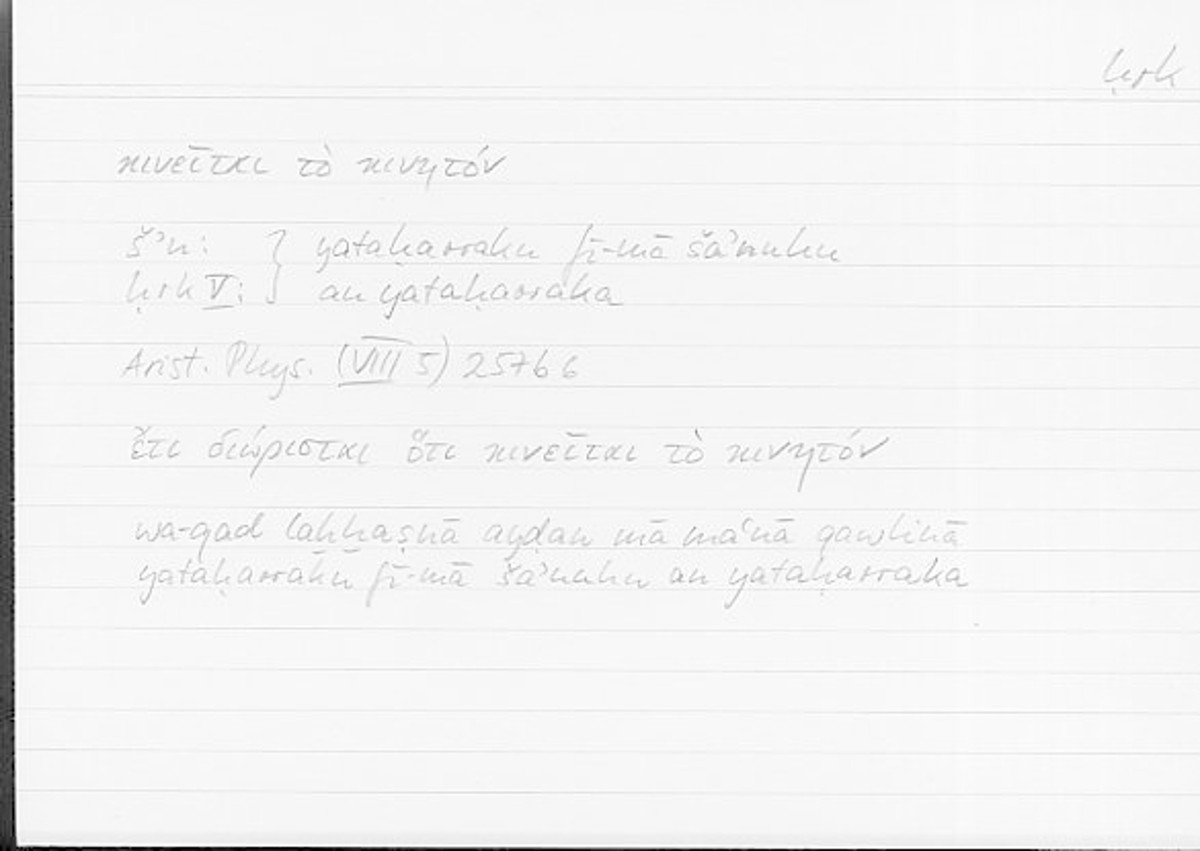 ḥrk
κινεῖται τὸ κινητόν
šʾn: } yataḥarraku fī-mā šaʾnuhu
ḥrk V: } an yataḥarraka
Arist. Phys. (VIII 5) 257b6
ἔτι διώρισται ὅτι κινεῖται τὸ κινητόν
wa-qad laḫḫaṣnā ayḍan mā maʿnā qawlinā
yataḥarraku fī-mā šaʾnuhu an yataḥarraka